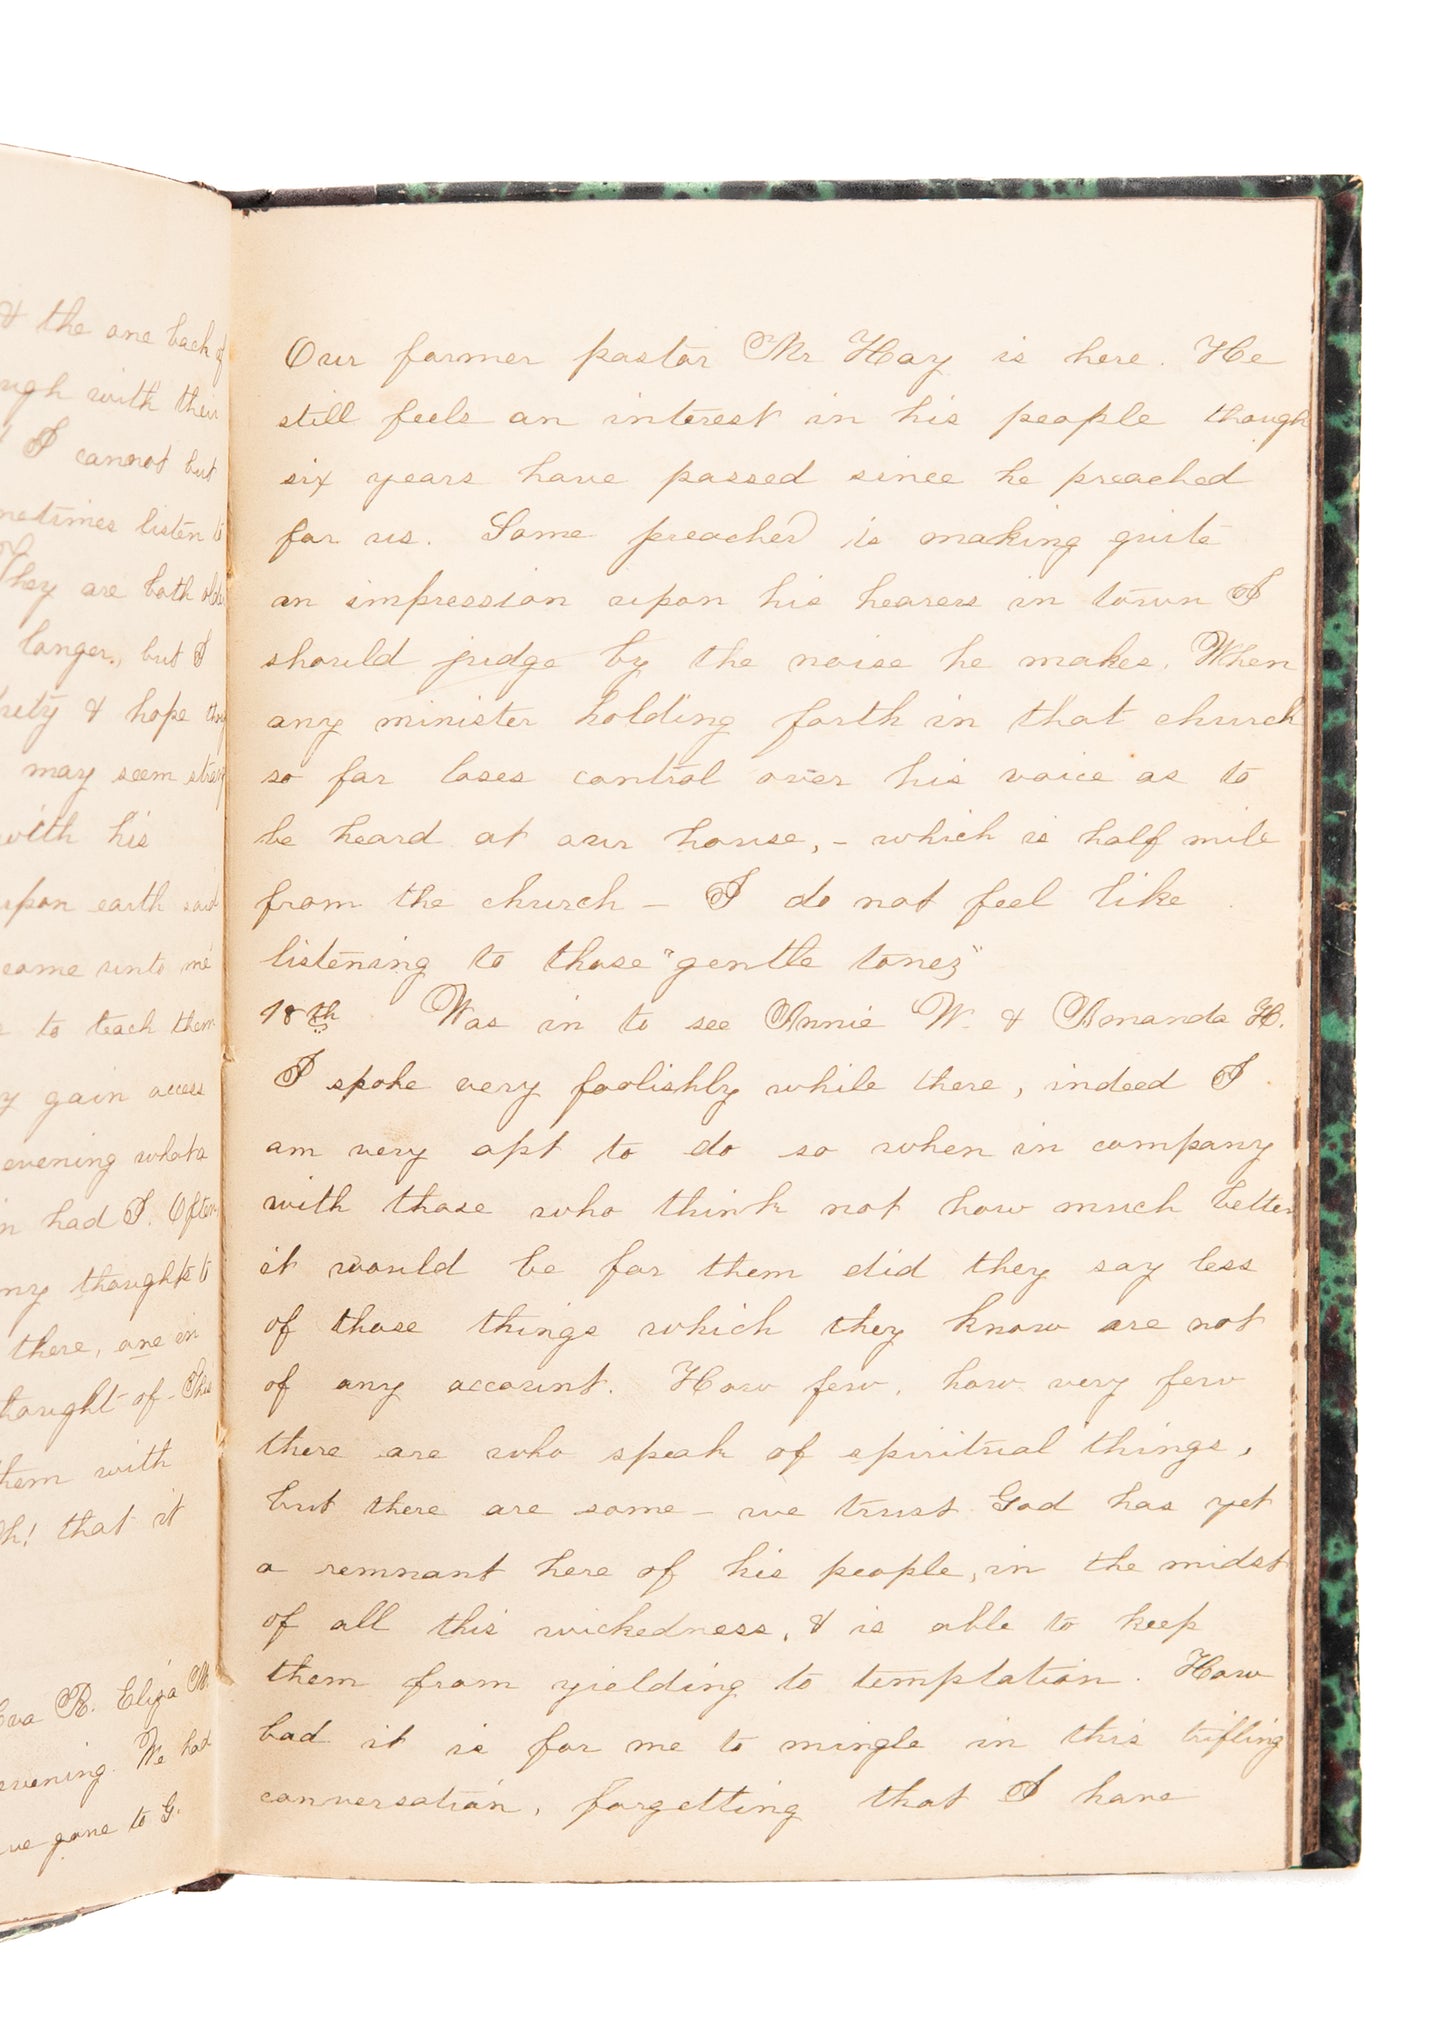 & the one back of
ugh with their
I cannot but
metimes listen to
They are both
longer, but I
& hope
may seem
with his
upon earth said
come unto me
to teach them
gain access
evening what a
had I. Often
my thoughts to
there, one in
thought of - This
them with
Oh! that it
Eva R. Eliza M.
evening. We had
gone to G.
Our former pastor Mr Hay is here. He
still feels an interest in his people though
six years have passed since he preached
for us. Some preacher is making quite
an impression upon his hearers in town I
should judge by the noise he makes. When
any minister holding forth in that church
so far loses control over his voice as to
be heard at our house, - which is half mile
from the church - I do not feel like
listening to those "gentle tones"
18th Was in to see Annie W. & Amanda H.
I spoke very foolishly while there, indeed I
am very apt to do so when in company
with those who think not how much better
it would be for them did they say less
of those things which they know are not
of any account. How few, how very few
there are who speak of spiritual things,
but there are some - we trust God has yet
a remnant here of his people, in the midst
of all this wickedness, & is able to keep
them from yielding to temptation. How
bad it is for me to mingle in this trifling
conversation, forgetting that I have